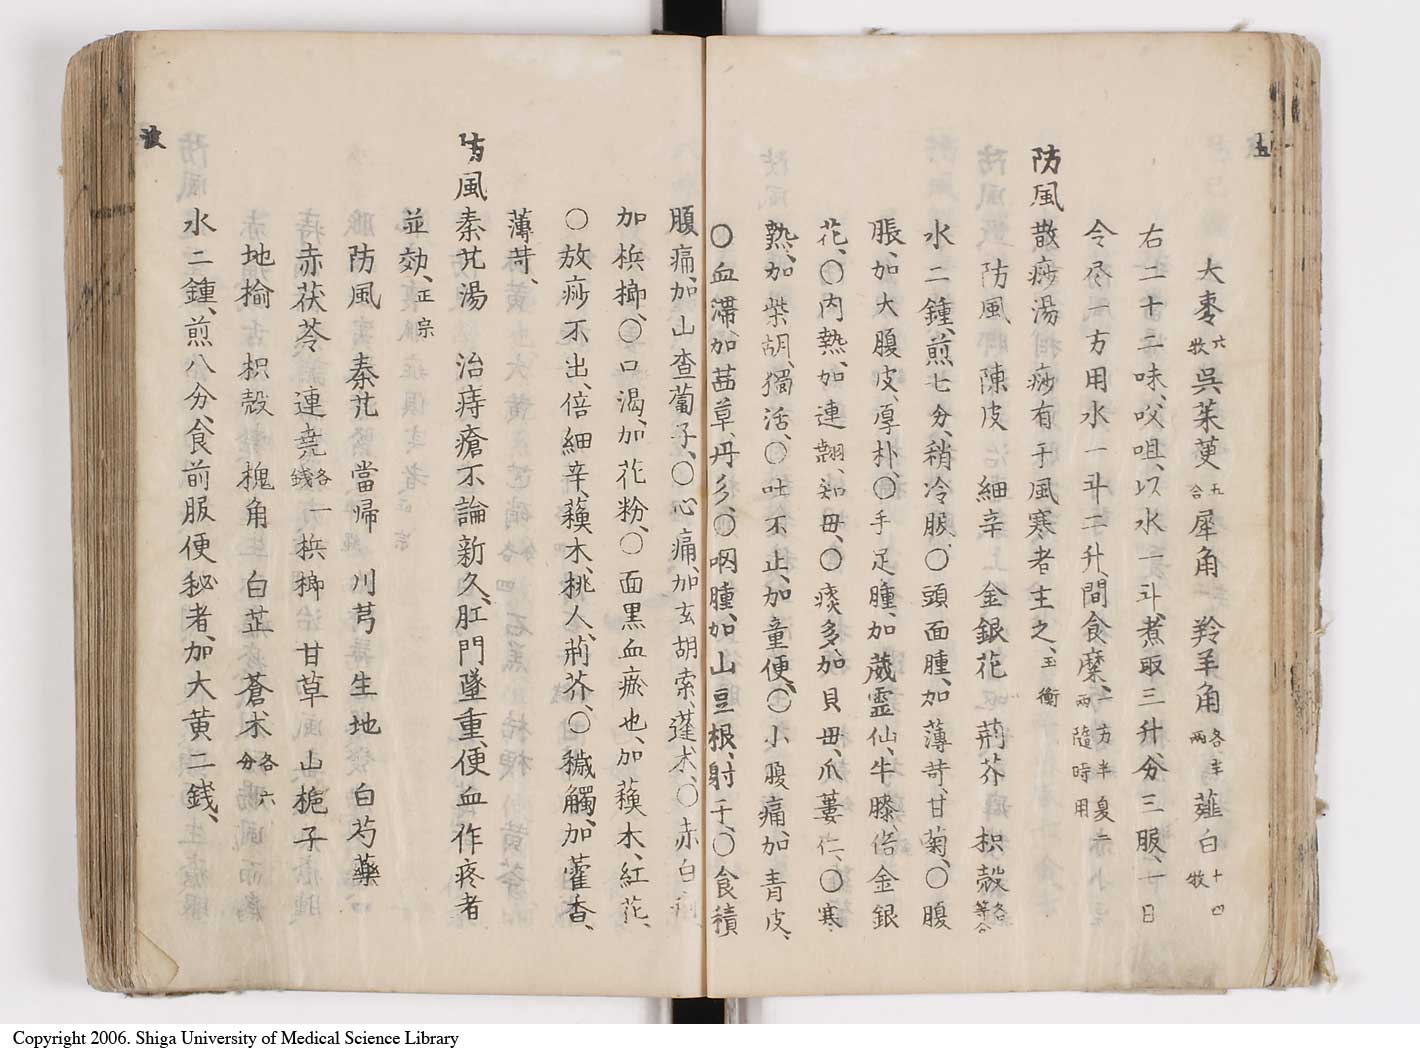 大麥六牧呉茱萸五合犀角一羚羊角各半兩薤白十四牧
右二十二味、㕮咀、以水一斗、煮取三升、分三服、一日
令尽一方用水一斗二升、間食糜、一方半夏二兩隨時用
防風散痧湯痧有于風寒者主之、玉衡
防風陳皮細辛金銀花荊芥枳殼各等分
水二鍾、煎七分、稍冷服、〇頭面腫、加薄苛、甘菊、〇腹
脹、加大腹皮、厚朴、〇手足腫、加葳霊仙、牛膝、倍金銀
花、〇内熱、加連翹、知母、〇痰多、加貝母、瓜蔞仁、〇寒
熱、加柴胡、獨活、〇吐不止、加童便、〇小腹痛、加青皮、
〇血滞、加茜草、丹多、〇咽腫、加山豆根、射干、〇食積
腹痛、加山查蔔子、〇心痛、加玄胡索、蓬朮、〇赤白痢、
加梹榔、〇口渇、加花粉、〇面黒血瘀也、加蘓木、紅花、
〇放痧不出、倍細辛、蘓木、桃人、荊芥、〇穢觸、加藿香、
薄苛、
防風秦艽湯治痔瘡不論新久、肛門墜重、便血作疼者
並効、正宗
防風秦艽當歸川芎生地白芍藥
赤茯苓連堯各一錢梹榔甘草山梔子
地楡枳殼槐角白芷蒼朮各六分
水二鍾、煎八分、食前服便秘者、加大黄二銭、
波